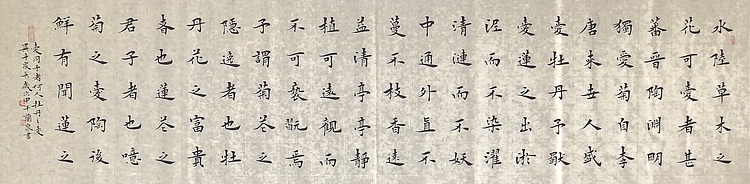 水陸草木之
花可愛者甚
蕃晉陶淵明
獨愛菊自李
唐來世人盛
愛牡丹予獨
愛蓮之出淤
泥而不染濯
清漣而不妖
中通外直不
蔓不枝香遠
益清亭亭靜
植可遠觀而
不可褻翫焉
予謂菊花之
隱逸者也牡
丹花之富貴
者也蓮花之
君子者也噫
菊之愛陶後
鮮有聞蓮之
愛同予者何人牡丹之愛
宜乎眾矣